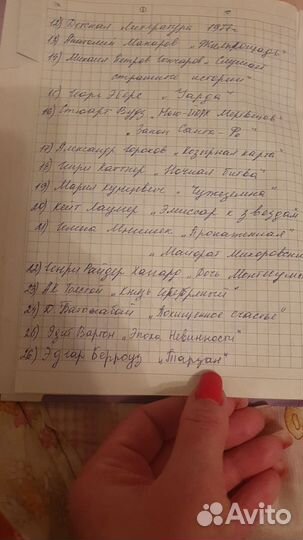 12) Детская Литература 1977г
13) Анатолий Макаров „Жилплощадь"
14) Михаил Петров Гончаров „Слушай
страшные истории"
15) Георг Эберс „Уарда"
16) Стюарт Вудз „Нью-Йорк Мертвецов"
„Закон Санта-Ф"
17) Александр Горохов „Козырная карта"
18) Генри Каттнер „Ночная битва"
19) Мария Кунцевич „Чужеземка"
20) Кейт Лаумер „Эмиссар к звездам
21) Гелена Мнишек „Прокаженная"
„Майорат Михоровский
22) Генри Райдер Хаггард „Дочь Монтесумы
23) А.К. Толстой „Князь Серебряный"
24) Д. Батожабай „Похищенное счастье"
25) Эдит Вартон „Эпоха Невинности"
26) Эдгар Берроуз „Тарзан"
Avito